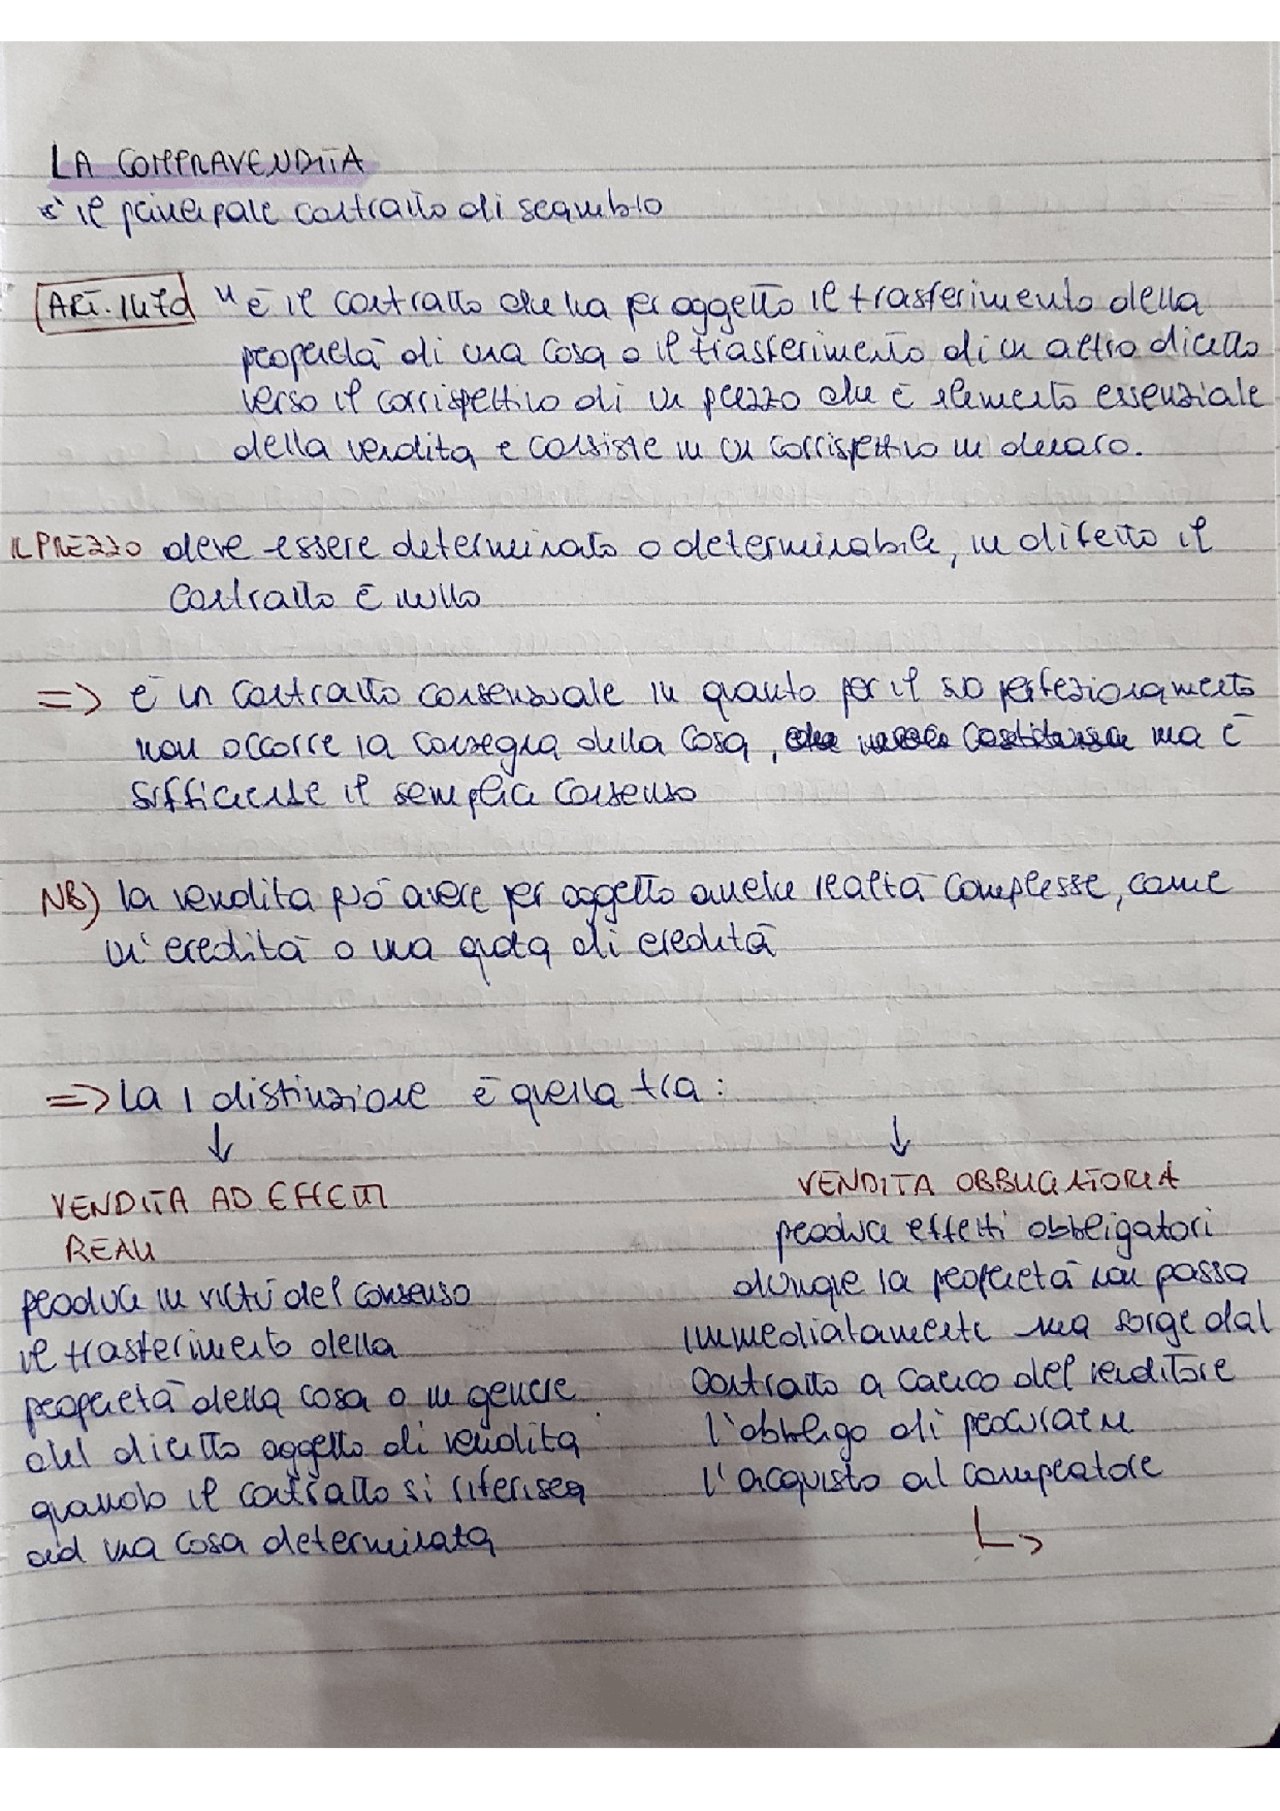 LA COMPRAVENDITA
è il principale contratto di scambio
ART. 1470 "è il contratto che ha per oggetto il trasferimento della
proprietà di una cosa o il trasferimento di un altro diritto
verso il corrispettivo di un prezzo che è elemento essenziale
della vendita e consiste in un corrispettivo in denaro.
IL PREZZO deve essere determinato o determinabile, in difetto il
contratto è nullo
=> è un contratto consensuale in quanto per il suo perfezionamento
non occorre la consegna della cosa, ma è
sufficiente il semplice consenso
NB) la vendita può avere per oggetto anche realtà complesse, come
un'eredità o una quota di eredità
=> La 1 distinzione è quella tra:
↓ ↓
VENDITA AD EFFETTI
REALI
produce in virtù del consenso
il trasferimento della
proprietà della cosa o in genere
del diritto oggetto di vendita
quando il contratto si riferisca
ad una cosa determinata
VENDITA OBBLIGATORIA
produce effetti obbligatori
dunque la proprietà non passa
immediatamente ma sorge dal
contratto a carico del venditore
l'obbligo di procurarne
l'acquisto al compratore